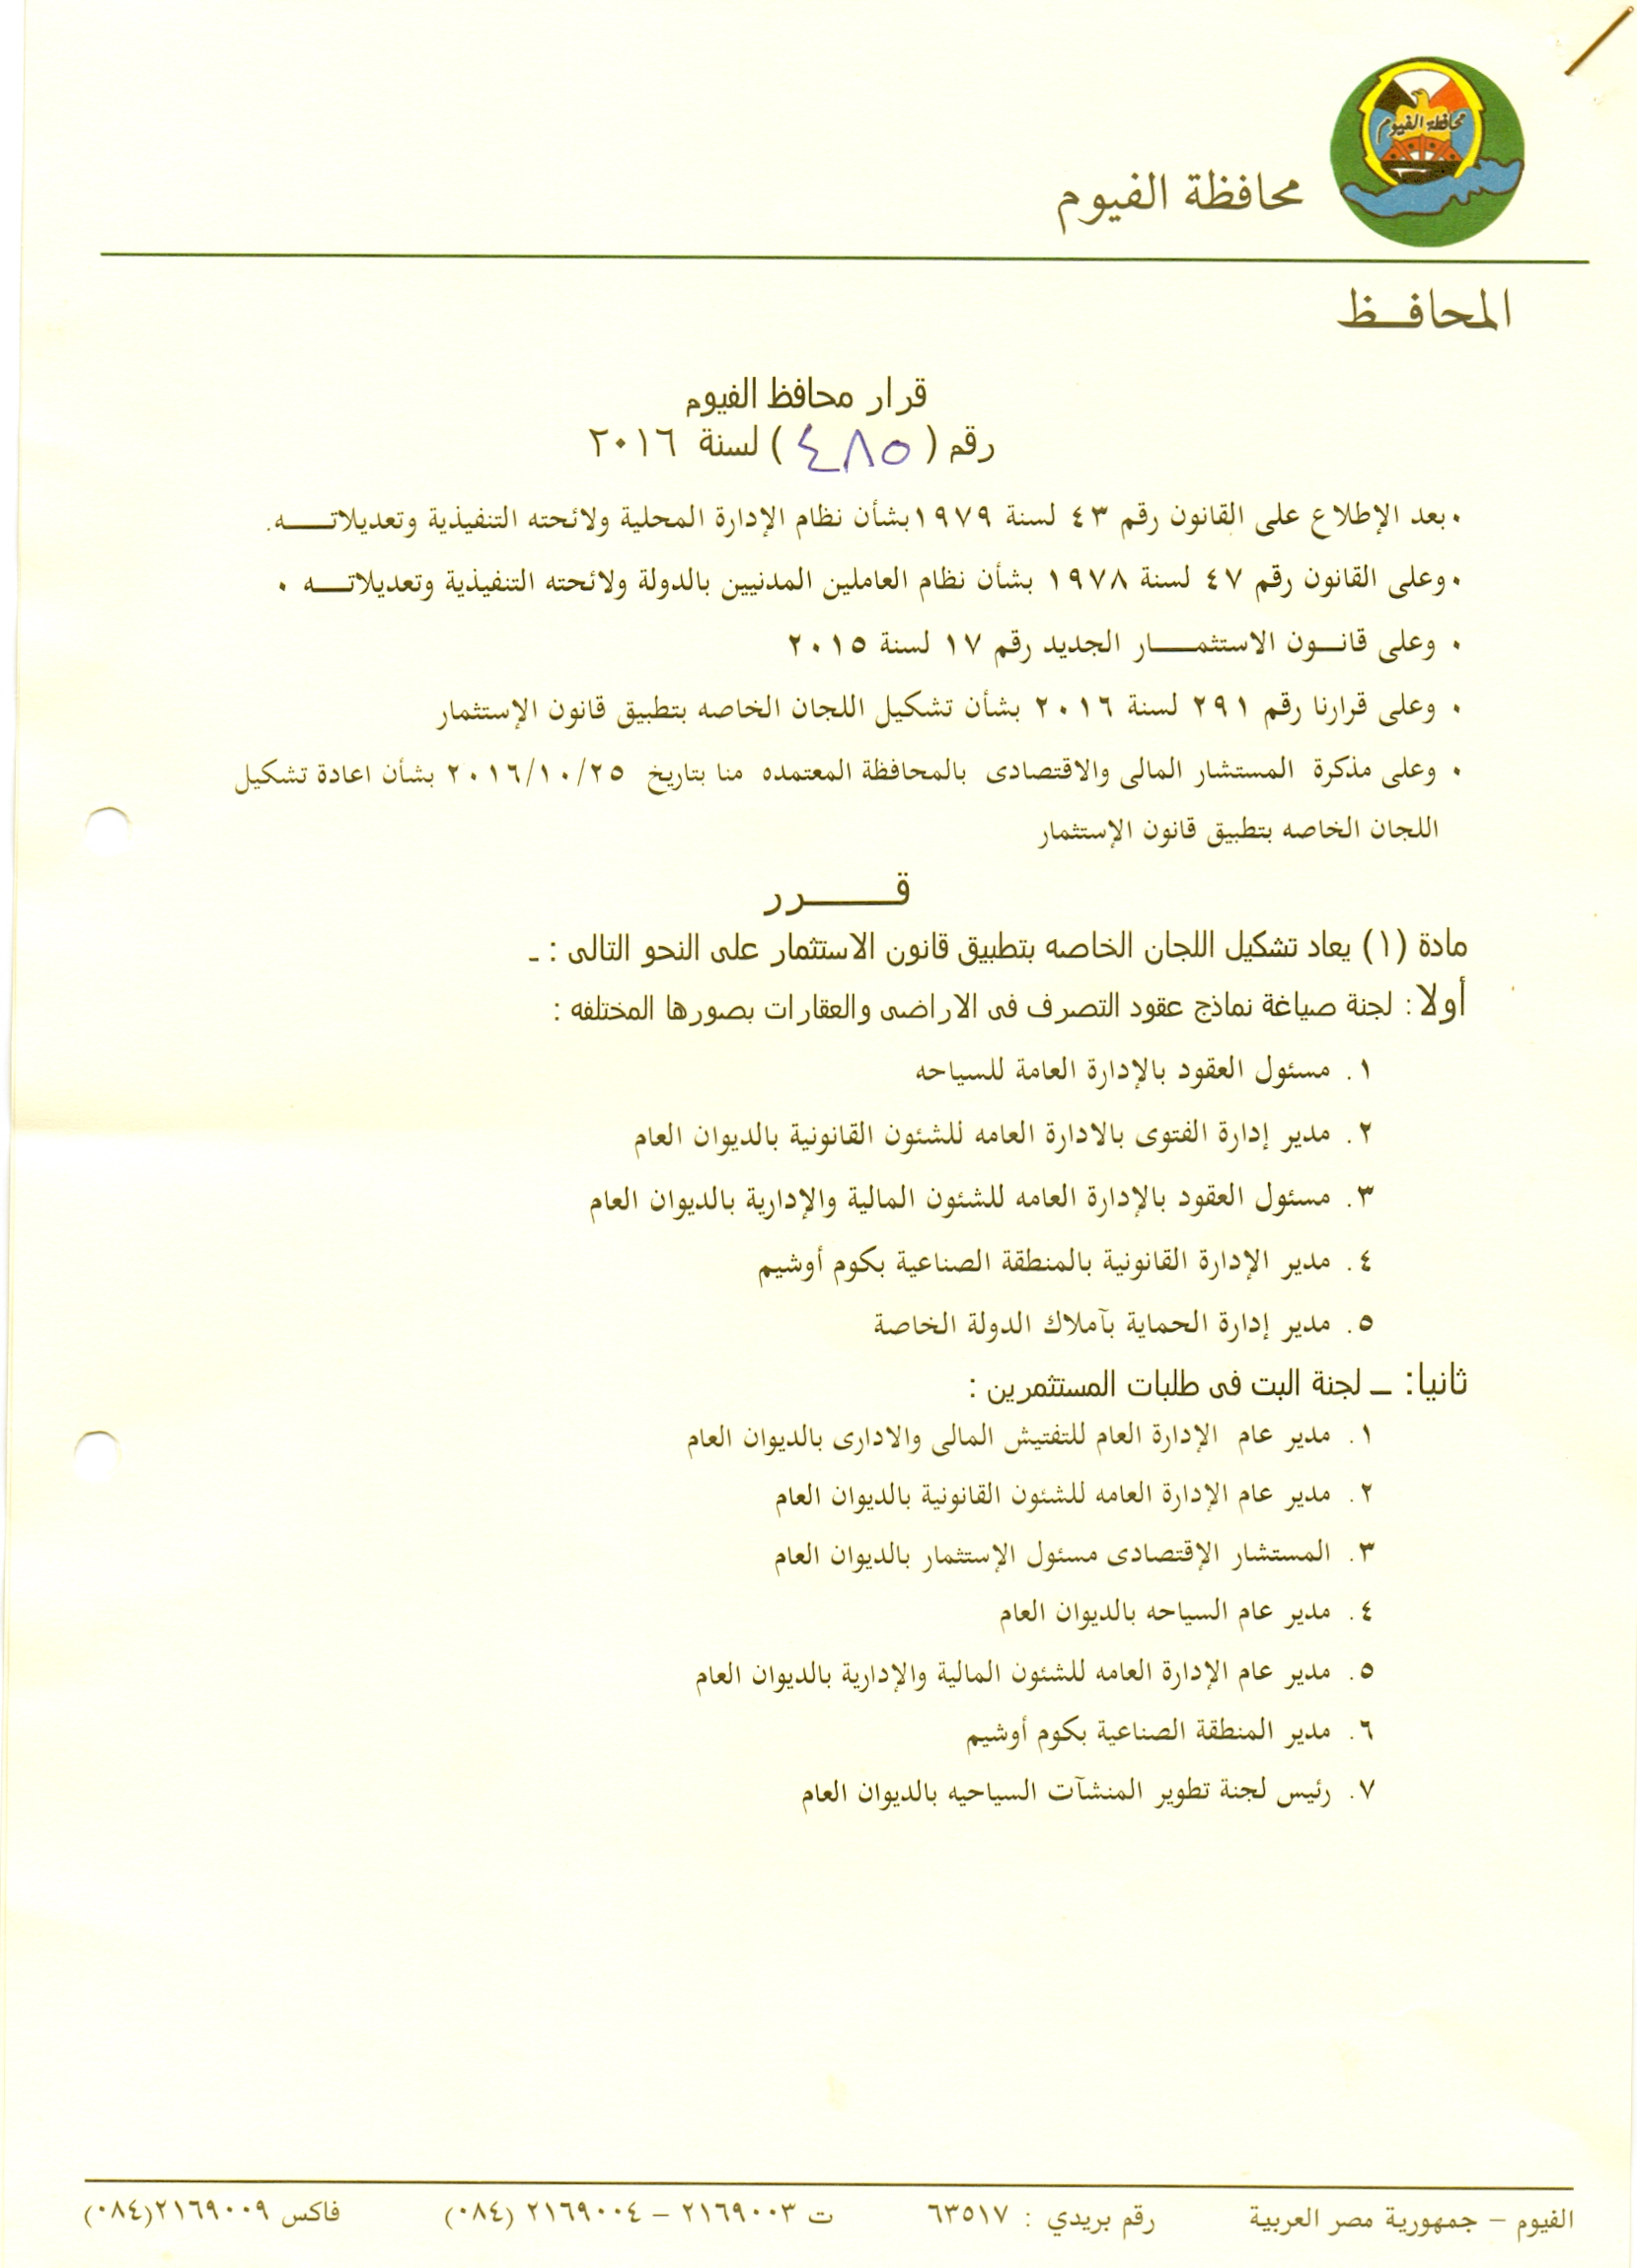 محافظة الفيوم
محافظة الفيوم
المحافــظ
قرار محافظ الفيوم
رقم ( ٤٨٥ ) لسنة ٢٠١٦
• بعد الإطلاع على القانون رقم ٤٣ لسنة ١٩٧٩ بشأن نظام الإدارة المحلية ولائحته التنفيذية وتعديلاتــــه.
• وعلى القانون رقم ٤٧ لسنة ١٩٧٨ بشأن نظام العاملين المدنيين بالدولة ولائحته التنفيذية وتعديلاتــــه ٠
• وعلى قانـــون الاستثمـــــار الجديد رقم ١٧ لسنة ٢٠١٥
• وعلى قرارنا رقم ٢٩١ لسنة ٢٠١٦ بشأن تشكيل اللجان الخاصه بتطبيق قانون الإستثمار
• وعلى مذكرة المستشار المالى والاقتصادى بالمحافظة المعتمده منا بتاريخ ٢٠١٦/١٠/٢٥ بشأن اعادة تشكيل
اللجان الخاصه بتطبيق قانون الإستثمار
قـــــــرر
مادة (١) يعاد تشكيل اللجان الخاصه بتطبيق قانون الاستثمار على النحو التالى : ـ
أولا : لجنة صياغة نماذج عقود التصرف فى الاراضى والعقارات بصورها المختلفه :
١. مسئول العقود بالإدارة العامة للسياحه
٢. مدير إدارة الفتوى بالادارة العامه للشئون القانونية بالديوان العام
٣. مسئول العقود بالإدارة العامه للشئون المالية والإدارية بالديوان العام
٤. مدير الإدارة القانونية بالمنطقة الصناعية بكوم أوشيم
٥. مدير إدارة الحماية بآملاك الدولة الخاصة
ثانيا: ــ لجنة البت فى طلبات المستثمرين :
١. مدير عام الإدارة العام للتفتيش المالى والادارى بالديوان العام
٢. مدير عام الإدارة العامه للشئون القانونية بالديوان العام
٣. المستشار الإقتصادى مسئول الإستثمار بالديوان العام
٤. مدير عام السياحه بالديوان العام
٥. مدير عام الإدارة العامه للشئون المالية والإدارية بالديوان العام
٦. مدير المنطقة الصناعية بكوم أوشيم
٧. رئيس لجنة تطوير المنشآت السياحيه بالديوان العام
الفيوم – جمهورية مصر العربية رقم بريدي : ٦٣٥١٧ ت ٢١٦٩٠٠٣ – ٢١٦٩٠٠٤ (٠٨٤) فاكس ٢١٦٩٠٠٩(٠٨٤)